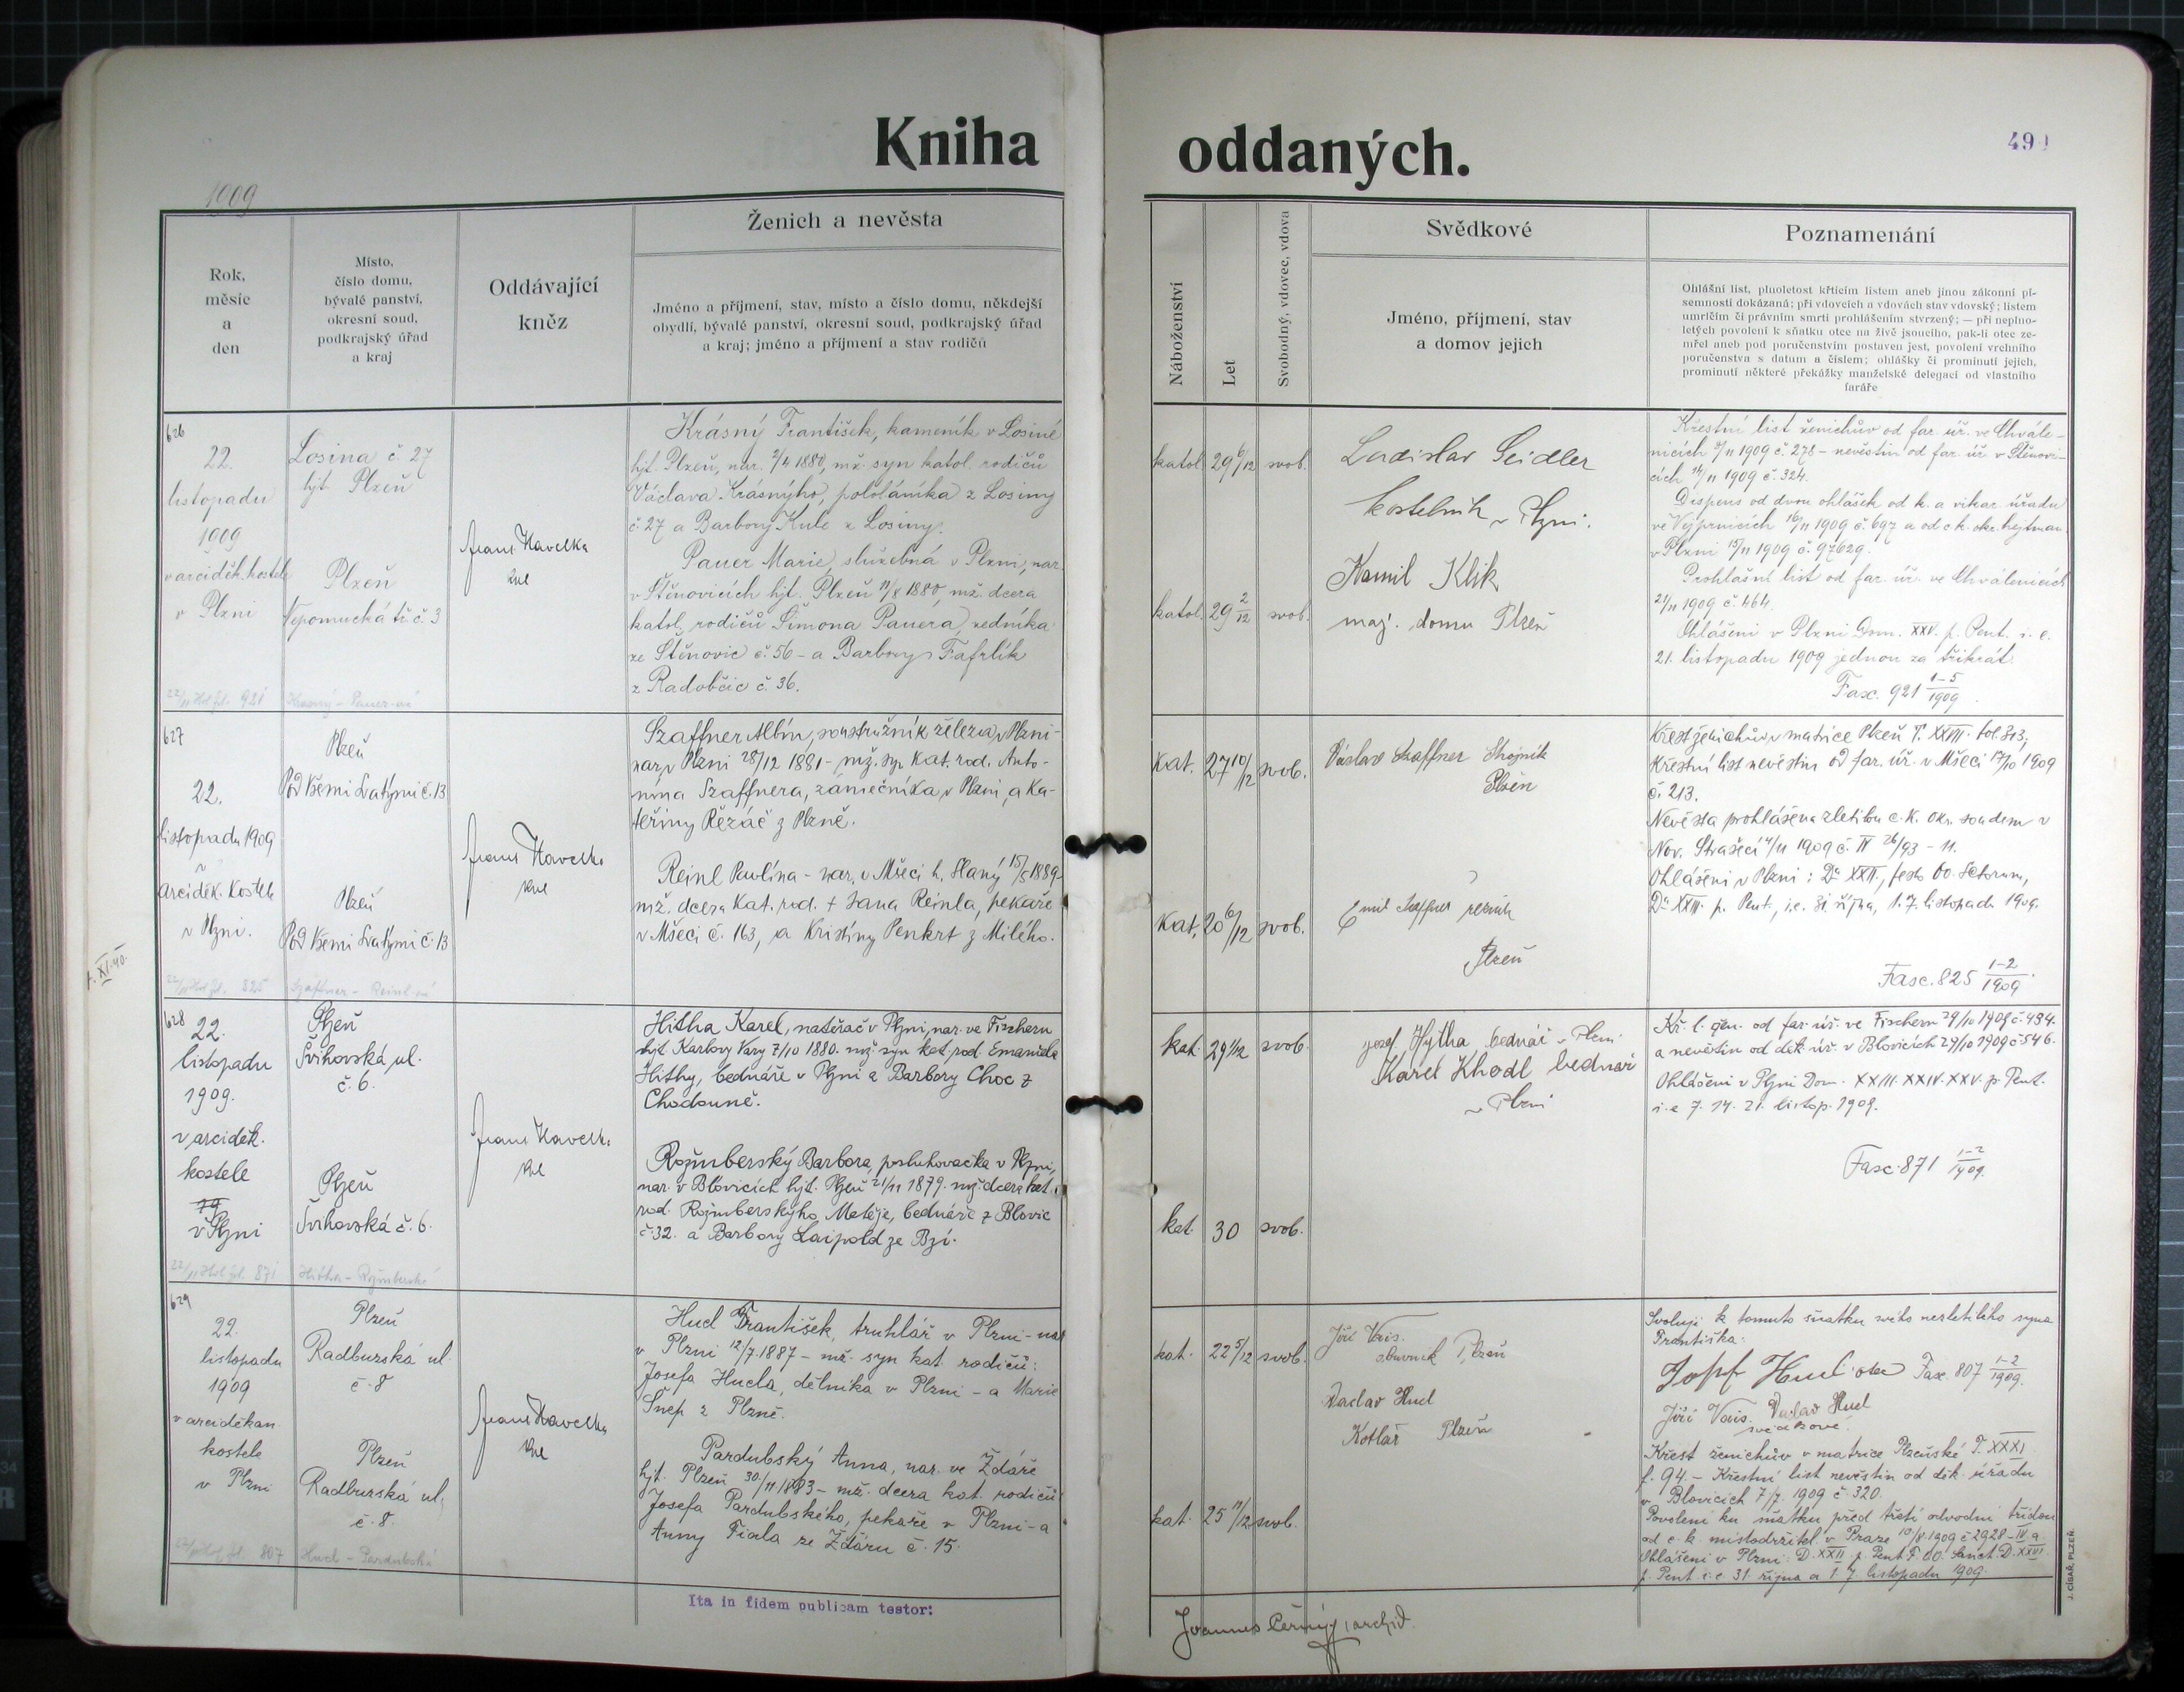 Kniha oddaných.
490
1909
Rok,
měsíc
a
den
Místo,
číslo domu,
bývalé panství,
okresní soud,
podkrajský úřad
a kraj
Oddávající
kněz
Ženich a nevěsta
Jméno a příjmení, stav, místo a číslo domu, někdejší
obydlí, bývalé panství, okresní soud, podkrajský úřad
a kraj; jméno a příjmení a stav rodičů
Náboženství
Let
Svobodný, vdovec, vdova
Svědkové
Jméno, příjmení, stav
a domov jejich
Poznamenání
Ohlášní list, plnoletost křticím listem aneb jinou zákonní pí-
semností dokázaná; při vdovcích a vdovách stav vdovský; listem
umrlčím či právním smrti prohlášením stvrzený; — při neplno-
letých povolení k sňatku otce na živě jsoucího, pak-li otec ze-
mřel aneb pod poručenstvím postaven jest, povolení vrchního
poručenstva s datum a číslem; ohlášky či prominutí jejich,
prominutí některé překážky manželské delegací od vlastního
faráře
626
22.
listopadu
1909
v arciděk. kostele
v Plzni
Losina č. 27
hjt. Plzeň
Plzeň
Nepomucká tř. č. 3
Franc Havelka
Krásný František, kameník v Losině
hjt. Plzeň, nar. 2/4 1880, mž. syn katol. rodičů
Václava Krásnýho, pololáníka z Losiny
č. 27 a Barbory Kule z Losiny.
Pauer Marie, služebná v Plzni, nar.
v Štěnovicích hjt. Plzeň 11/8 1880, mž. dcera
katol. rodičů Šimona Pauera, zedníka
ze Štěnovic č. 56 - a Barbory Fafrlík
z Radobčic č. 36.
katol. 29 6/12 svob.
katol. 29 2/12 svob.
Ladislav Seidler
kostelník v Plzni.
Kamil Klik
maj. domu Plzeň
Křestní list ženichův od far. úř. ve Chvále-
nicích 9/11 1909 č. 278 - nevěstin od far. úř. v Štěnovi-
cích 14/11 1909 č. 324.
Dispens od dvou ohlášek od k. a vikar. úřadu
ve Vejprnicích 16/11 1909 č. 697 a od c. k. okr. hejtman.
v Plzni 15/11 1909 č. 97629.
Prohlašní list od far. úř. ve Chválenicích
21/11 1909 č. 464.
Ohlášeni v Plzni Dom. XXV. p. Pent. i. e.
21. listopadu 1909 jednou za třikrát.
Fasc. 921 1-5/1909
627
22.
listopadu 1909
v
arciděk. kostele
v Plzni.
Plzeň
Pod Všemi Svatými č. 13
Plzeň
Pod Všemi Svatými č. 13
Franc Havelka
Szaffner Albín, soustružník železa, v Plzni -
nar. v Plzni 28/12 1881 - mž. syn kat. rod. Anto-
nína Szaffnera, zámečníka v Plzni, a Ka-
teřiny Řezáč z Plzně.
Reinl Pavlína - nar. v Mšeci h. Slaný 15/5 1889-
mž. dcera kat. rod. † Jana Reinla, pekaře
v Mšeci č. 163, a Kristiny Penkrt z Milého.
Kat. 27 10/12 svob.
Kat. 20 6/12 svob.
Václav Szaffner Strojník
Plzeň
Emil Szaffner řezník
Plzeň
Křest ženichův v matrice Plzeň T. XXVII. fol. 313;
Křestní list nevěstin od far. úř. v Mšeci 17/10 1909
č. 213.
Nevěsta prohlášena zletilou c. k. okr. soudem v
Nov. Strašecí 4/11 1909 č. IV 26/93 - 11.
Ohlášeni v Plzni: Dca XXII., festo OO. Sctorum,
Dca XXIII. p. Pent., i. e. 31. října, 1. 7. listopadu 1909.
Fasc. 825 1-2/1909.
628
22.
listopadu
1909.
v arciděk.
kostele
v Plzni
Plzeň
Švihovská ul.
č. 6.
Plzeň
Švihovská č. 6.
Franc Havelka
Hitha Karel, natěrač v Plzni, nar. ve Fischern
hjt. Karlovy Vary 7/10 1880. mž. syn kat. rod. Emanuela
Hithy, bednáře v Plzni a Barbory Choc z
Chodouně.
Rožmberský Barbora, posluhovačka v Plzni,
nar. v Blovicích hjt. Plzeň 21/11 1879. mž. dcera kat.
rod. Rožmberskýho Matěje, bednáře z Blovic
č. 32. a Barbory Laipold ze Bzí.
kat. 29 1/12 svob.
kat. 30 svob.
Josef Hytha bednář v Plzni
Karel Khodl bednář
v Plzni
Kř. l. žen. od far. úř. ve Fischern 29/10 1909 č. 494.
a nevěstin od děk. úř. v Blovicích 29/10 1909 č. 546.
Ohlášeni v Plzni Dom. XXIII. XXIV. XXV. p. Pent.
i. e. 7. 14. 21. listop. 1909.
Fasc. 871 1-2/1909.
629
22.
listopadu
1909
v arciděkan.
kostele
v Plzni
Plzeň
Radbuzská ul.
č. 8
Plzeň
Radbuzská ul.
č. 8.
Franc Havelka
Hucl František, truhlář v Plzni - nar.
v Plzni 12/7 1887 - mž. syn kat. rodičů:
Josefa Hucla, dělníka v Plzni - a Marie
Šnep z Plzně.
Pardubský Anna, nar. ve Ždáře
hjt. Plzeň 30/11 1883 - mž. dcera kat. rodičů
Josefa Pardubského, pekaře v Plzni - a
Anny Fiala ze Ždáru č. 15.
kat. 22 5/12 svob.
kat. 25 11/12 svob.
Jiří Vais.
obuvník Plzeň
Vaclav Hucl
Kotlář Plzeň
Svoluji k tomuto sňatku svého nezletilého syna
Františka:
Josef Hucl otec Fasc. 807 1-2/1909.
Jiří Vais. Vaclav Hucl
svědkové.
Křest ženichův v matrice Plzeňské T. XXXI.
f. 94. - Křestní list nevěstin od děk. úřadu
v Blovicích 7/7. 1909 č. 320.
Povolení ku sňatku před třetí odvodní třídou
od c. k. místodržitel. v Praze 10/8 1909 č. 2928-IV a.
Ohlášeni v Plzni: D. XXII p. Pent. F. OO. Sanct. D. XXIII.
p. Pent. i. e. 31. října a 1. 7. listopadu 1909.
Ita in fidem publicam testor:
Joannes Černý, archid.
J. CÍSAŘ, PLZEŇ.